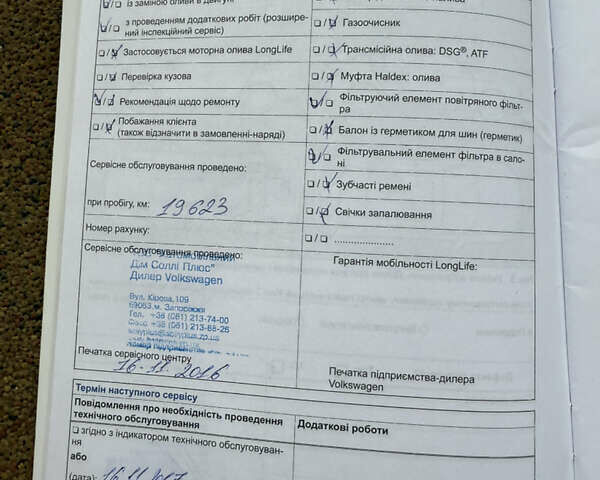 із заміною оливи в двигуні
з проведенням додаткових робіт (розширений інспекційний сервіс)
Застосовується моторна олива LongLife
Перевірка кузова
Рекомендація щодо ремонту
Побажання клієнта
(також відзначити в замовленні-наряді)
Сервісне обслуговування проведено:
при пробігу, км: 19623
Номер рахунку:
Газоочисник
Трансмісійна олива: DSG®, ATF
Муфта Haldex: олива
Фільтруючий елемент повітряного фільт-
ра
Балон із герметиком для шин (герметик)
Фільтрувальний елемент фільтра в сало-
ні
Зубчасті ремені
Свічки запалювання
....................
Сервісне обслуговування проведено:
Дім Соллі Плюс"
Дилер Volkswagen
Вул. Кірова, 109
69063, м. Запоріжжя
Тел. +38 (061) 213-74-00
+38 (061) 213-88-26
Печатка сервісного центру
16.11.2016
Гарантія мобільності LongLife:
Печатка підприємства-дилера
Volkswagen
Термін наступного сервісу
Повідомлення про необхідність проведення
технічного обслуговування
Додаткові роботи
згідно з індикатором технічного обслуговуван-
ня
або
(дата): 16.11.2017